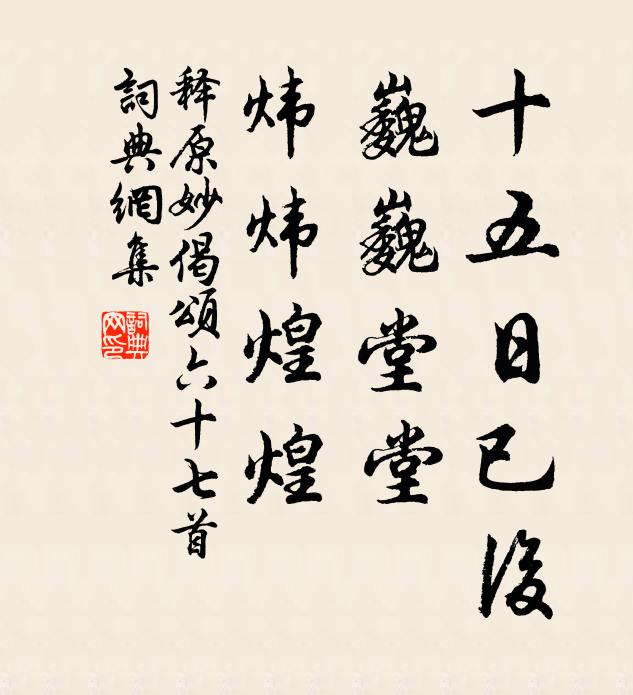 十五日已後
巍巍堂堂
炜炜煌煌
释原妙偈頌六十七首
詞典網集
詞典网印